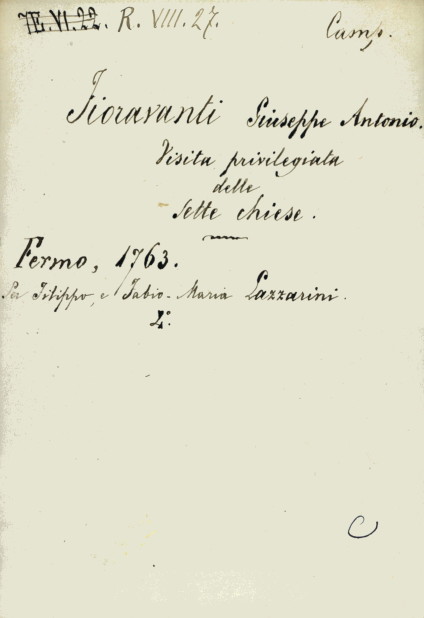 Æ.VI.22. R. VIII. 27. Camp.
Fioravanti Giuseppe Antonio.
Visita privilegiata
delle
sette chiese.
Fermo, 1763.
Per Filippo, e Fabio-Maria Lazzarini.
4°.
C